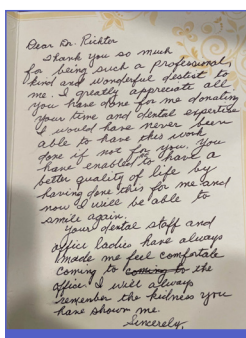 Dear Dr. Richter
Thank you so much
for being such a professional,
kind and wonderful destist to
me. I greatly appreciate all
you have done for me donating
your time and dental expertise
I would have never been
able to have this work
done if not for you. You
have enabled to have a
better quality of life by
having done this for me and
now I will be able to
smile again.
Your dental staff and
office ladies have always
made me feel comfortable
coming to coming to the
office. I will always
remember the kidness you
have shown me.
Sincerely,